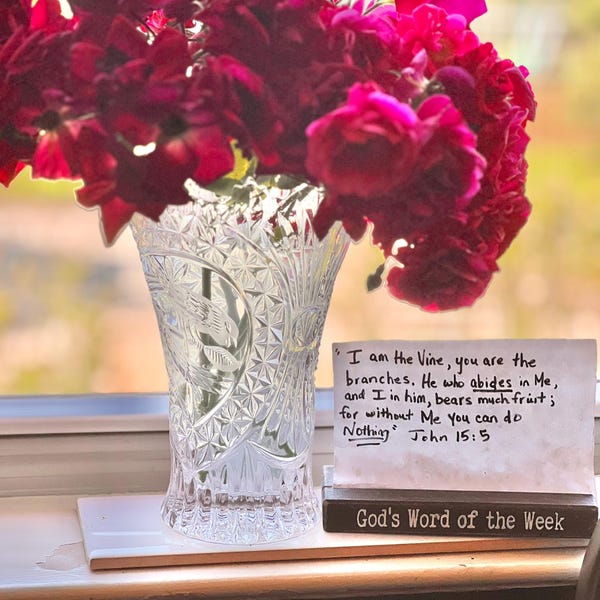 "I am the Vine, you are the
branches. He who abides in Me,
and I in him, bears much fruit;
for without Me you can do
Nothing" John 15:5
God's Word of the Week